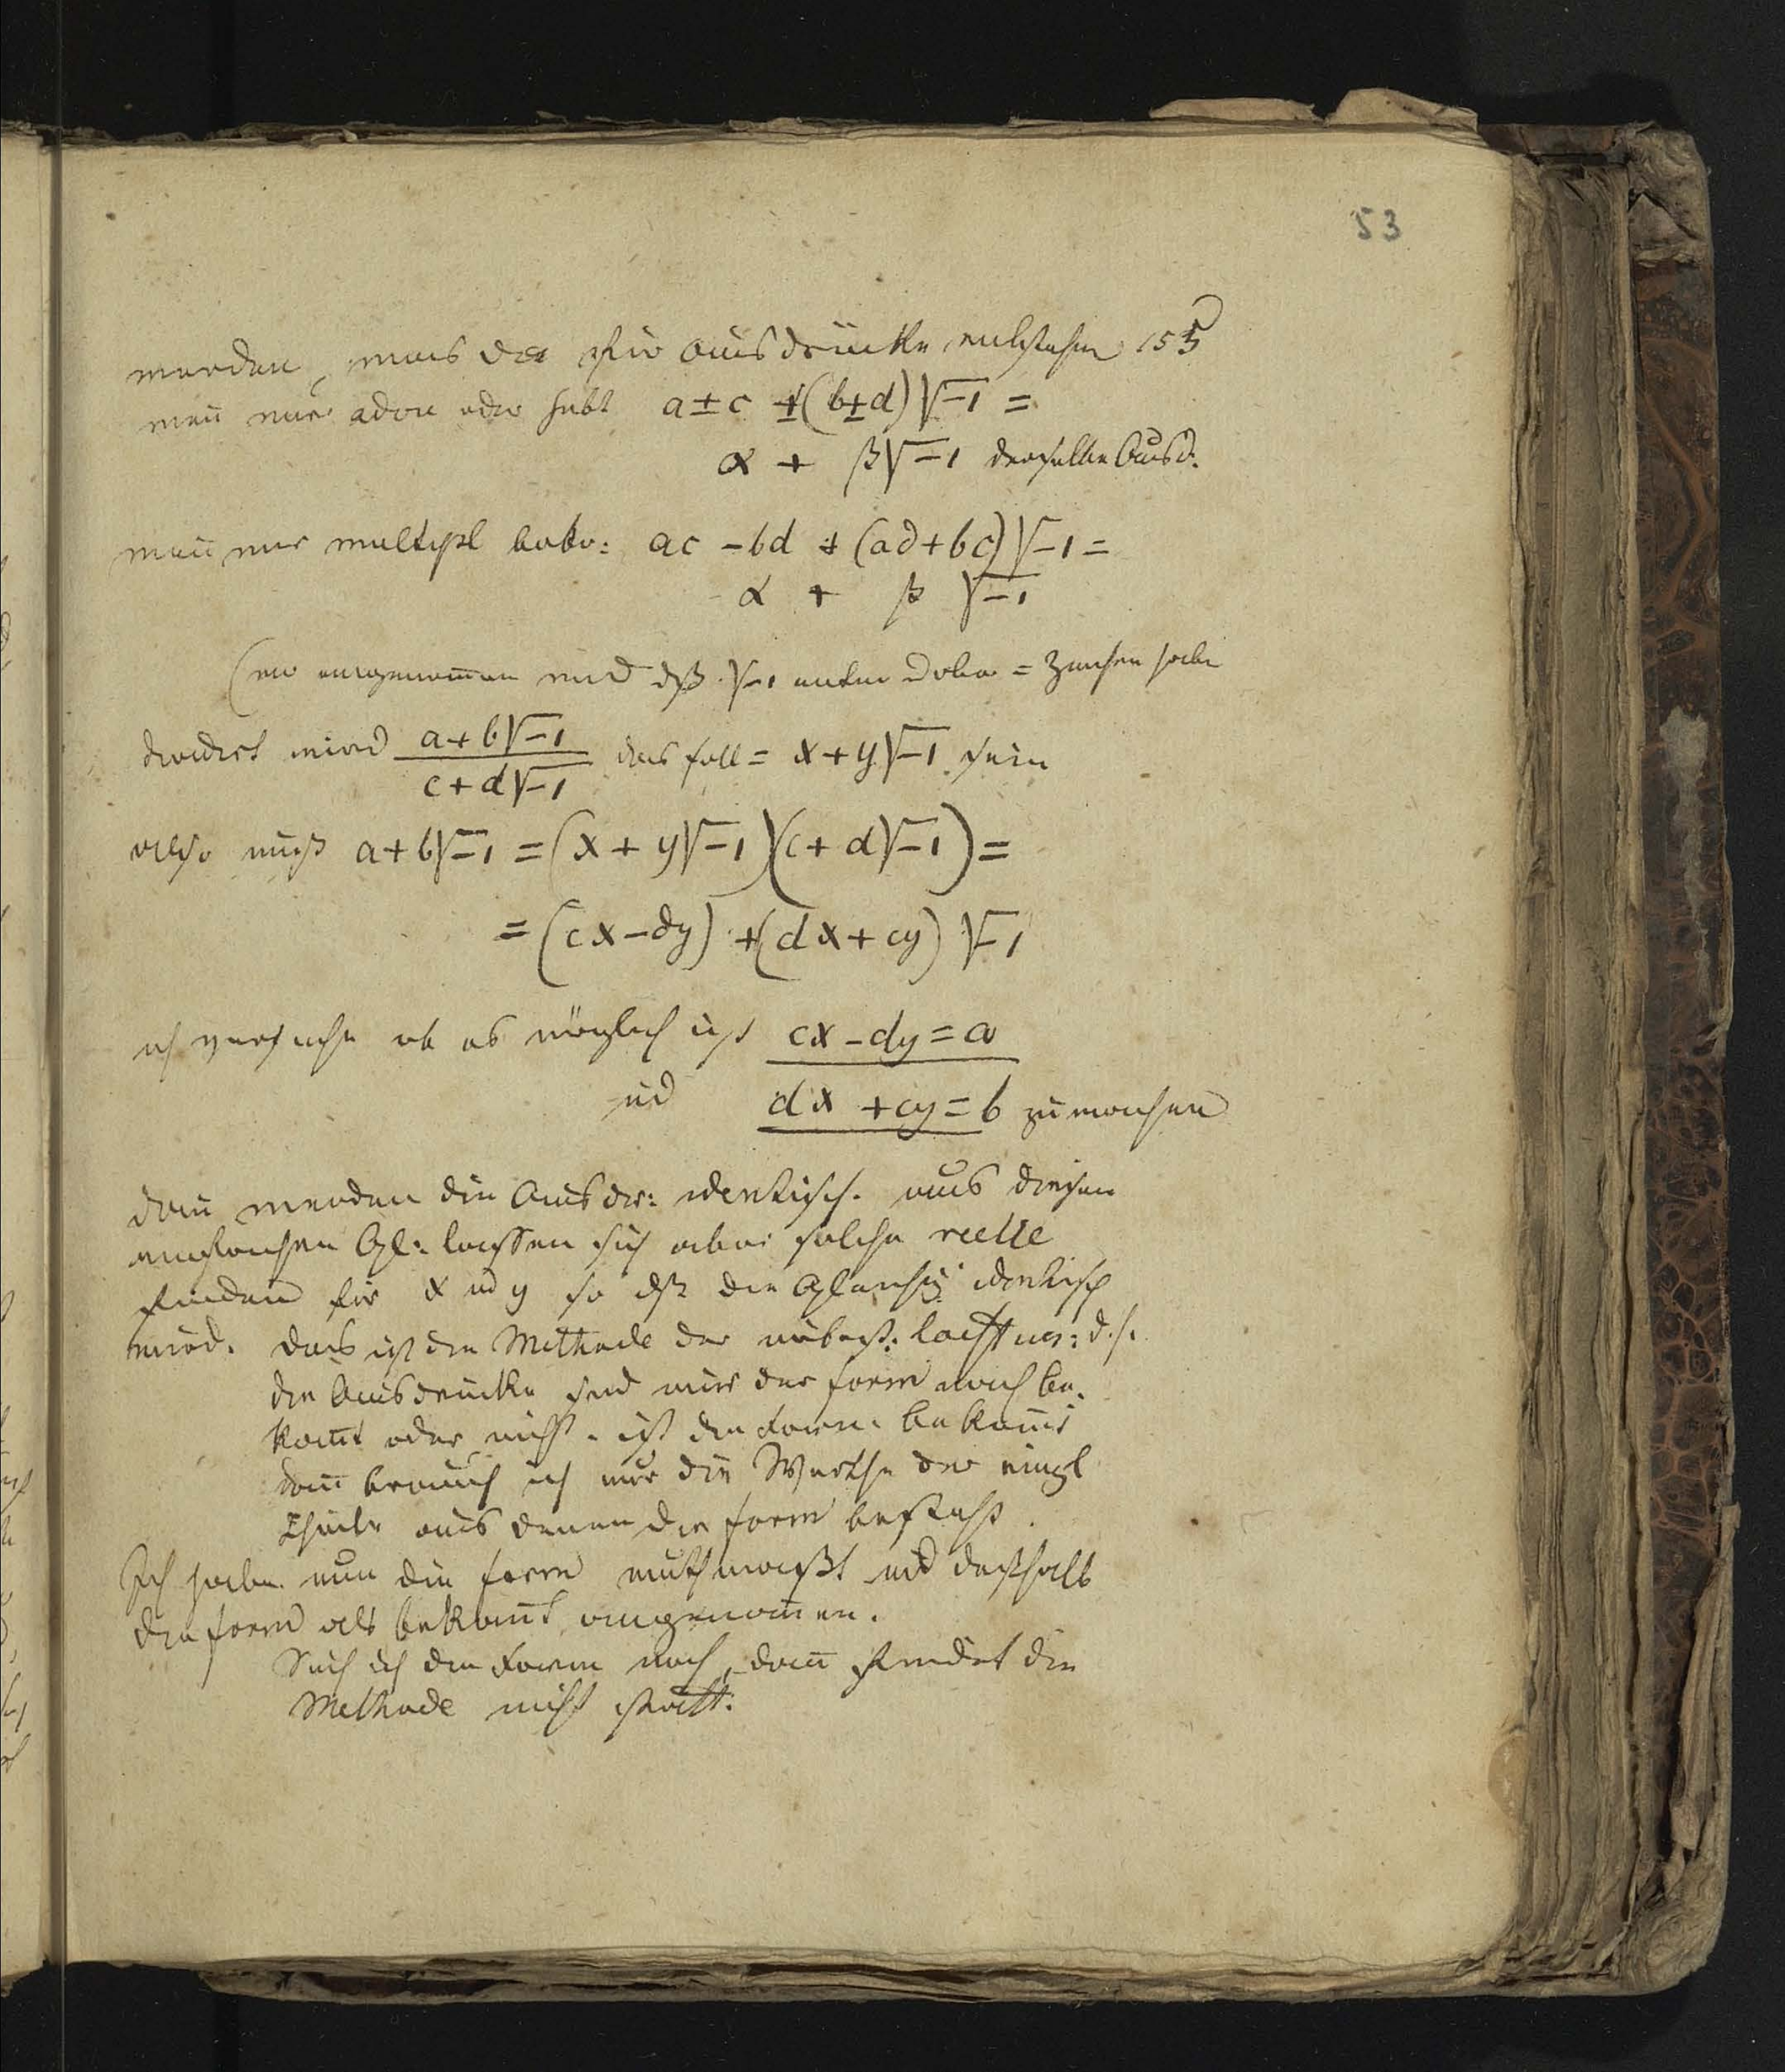 53
werden, was da für Ausdrücke entstehen 155
weñ wir addire oder subt a ± c ± (b±d)√-1 =
α + β√-1 derselbe Ausd.
weñ wir multipl : ac - bd + (ad+bc)√-1 =
α + β √-1
(wo angenommen wird dß √-1 unten oder = Zeichen habe
dividirt wird (a+b√-1)/(c+d√-1) das soll = x+y√-1 sein
also muß a+b√-1 = (x+y√-1)(c+d√-1) =
= (cx-dy) + (dx+cy) √-1
ich versuche ob es möglich ist cx-dy=a
ud dx+cy=b zu machen
dañ werden die Ausdr: identisch. aus diesen
einfachen Gl: lassen sich aber solche reelle
finden für x ud y so dß die Gleichg: identisch
wird. Das ist die Methode der unbest: : d.h.
die Ausdrücke sind mir der Form nach be-
kañt oder nicht. ist die Form bekañt
dañ brauch ich nur die Werthe der einzl
Theile aus denen die Form besteht.
Ich habe nun die Form muthmaßt ud deßhalb
die Form als bekañt angenom̃en.
Such ich die Form noch, dañ findet die
Methode nicht statt.